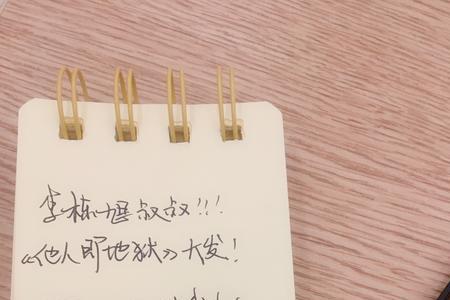 李栋旭叔叔!!!
《他人即地狱》大发!